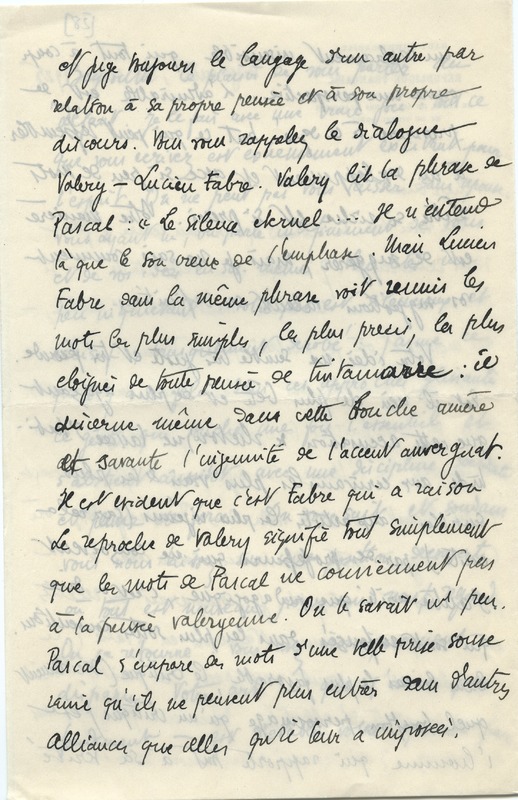 juge toujours le langage d'un autre par
relation à sa propre pensée et à son propre
discours. Vous vous rappelez le dialogue
Valery – Lucien Fabre. Valery lit la phrase de
Pascal : « Le silence eternel ... Je n'entend
là que le son creux de l'emphase. Mais Lucien
Fabre dans la même phrase voit reunis les
mots les plus simples, les plus precis, les plus
eloignés de toute pensée de tintamarre : il
discerne même dans cette bouche amère
et savante l'ingenuité de l'accent auvergnat.
Il est evident que c'est Fabre qui a raison
Le reproche de Valery signifie tout simplement
que les mots de Pascal ne conviennent pas
à la pensée valeryenne. On le savait un peu.
Pascal s'empare des mots d'une telle prise souve
raine qu'ils ne peuvent plus entrer dans d'autres
alliances que celles qu'il leur a imposées.